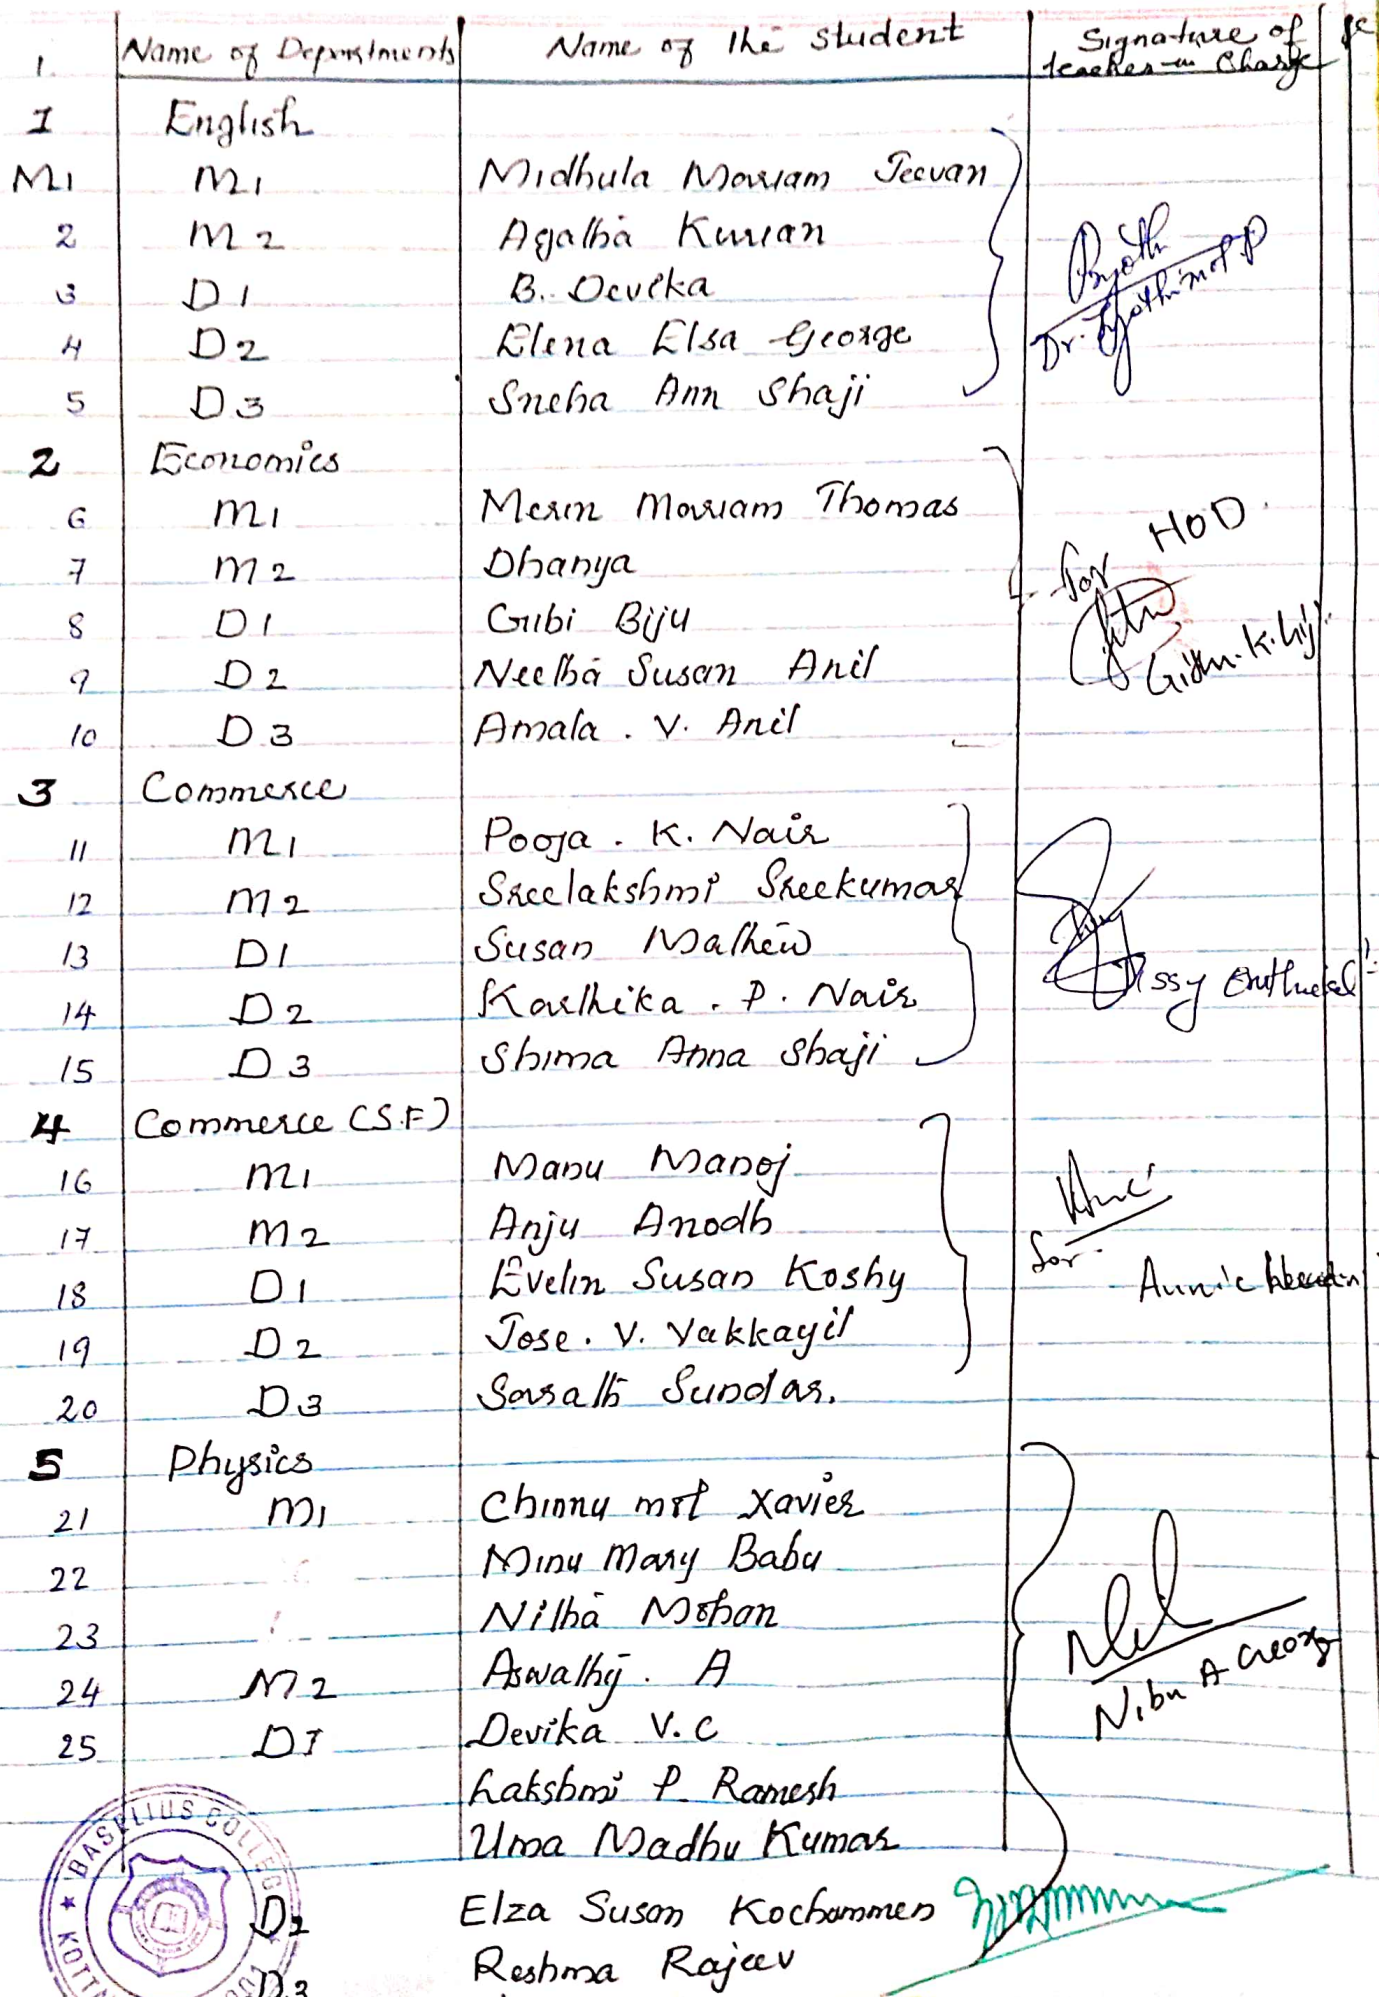 1. Name of Departments Name of the student Signature of
teacher-in Charge
1 English
M1 M1 Midhula Mariam Jeevan
2 M2 Agatha Kurian
3 D1 B. Devika
4 D2 Elena Elsa George
5 D3 Sneha Ann Shaji
Dr. Jyothimol P
2 Economics
6 M1 Merin Mariam Thomas
7 M2 Dhanya
for HOD
8 D1 Gubi Biju
9 D2 Neetha Susan Anil
10 D3 Amala . V. Anil
3 Commerce
11 M1 Pooja . K. Nair
12 M2 Sreelakshmi Sreekumar
13 D1 Susan Mathew
14 D2 Karthika . P. Nair
15 D3 Shima Anna Shaji
4 Commerce (S.F)
16 M1 Manu Manoj
17 M2 Anju Anodh
for
18 D1 Evelin Susan Koshy Annie
19 D2 Jose . V. Vakkayil
20 D3 Sarath Sundar.
5 Physics
21 M1 Chinnu mol Xavier
22 Minu Mary Babu
23 Nitha Mohan
24 M2 Aswathy . A
Nibu A George
25 D1 Devika V.C
Lakshmi P. Ramesh
Uma Madhu Kumar
BASELIUS COLLEG
D2 Elza Susan Kochammen
D3 Reshma Rajeev